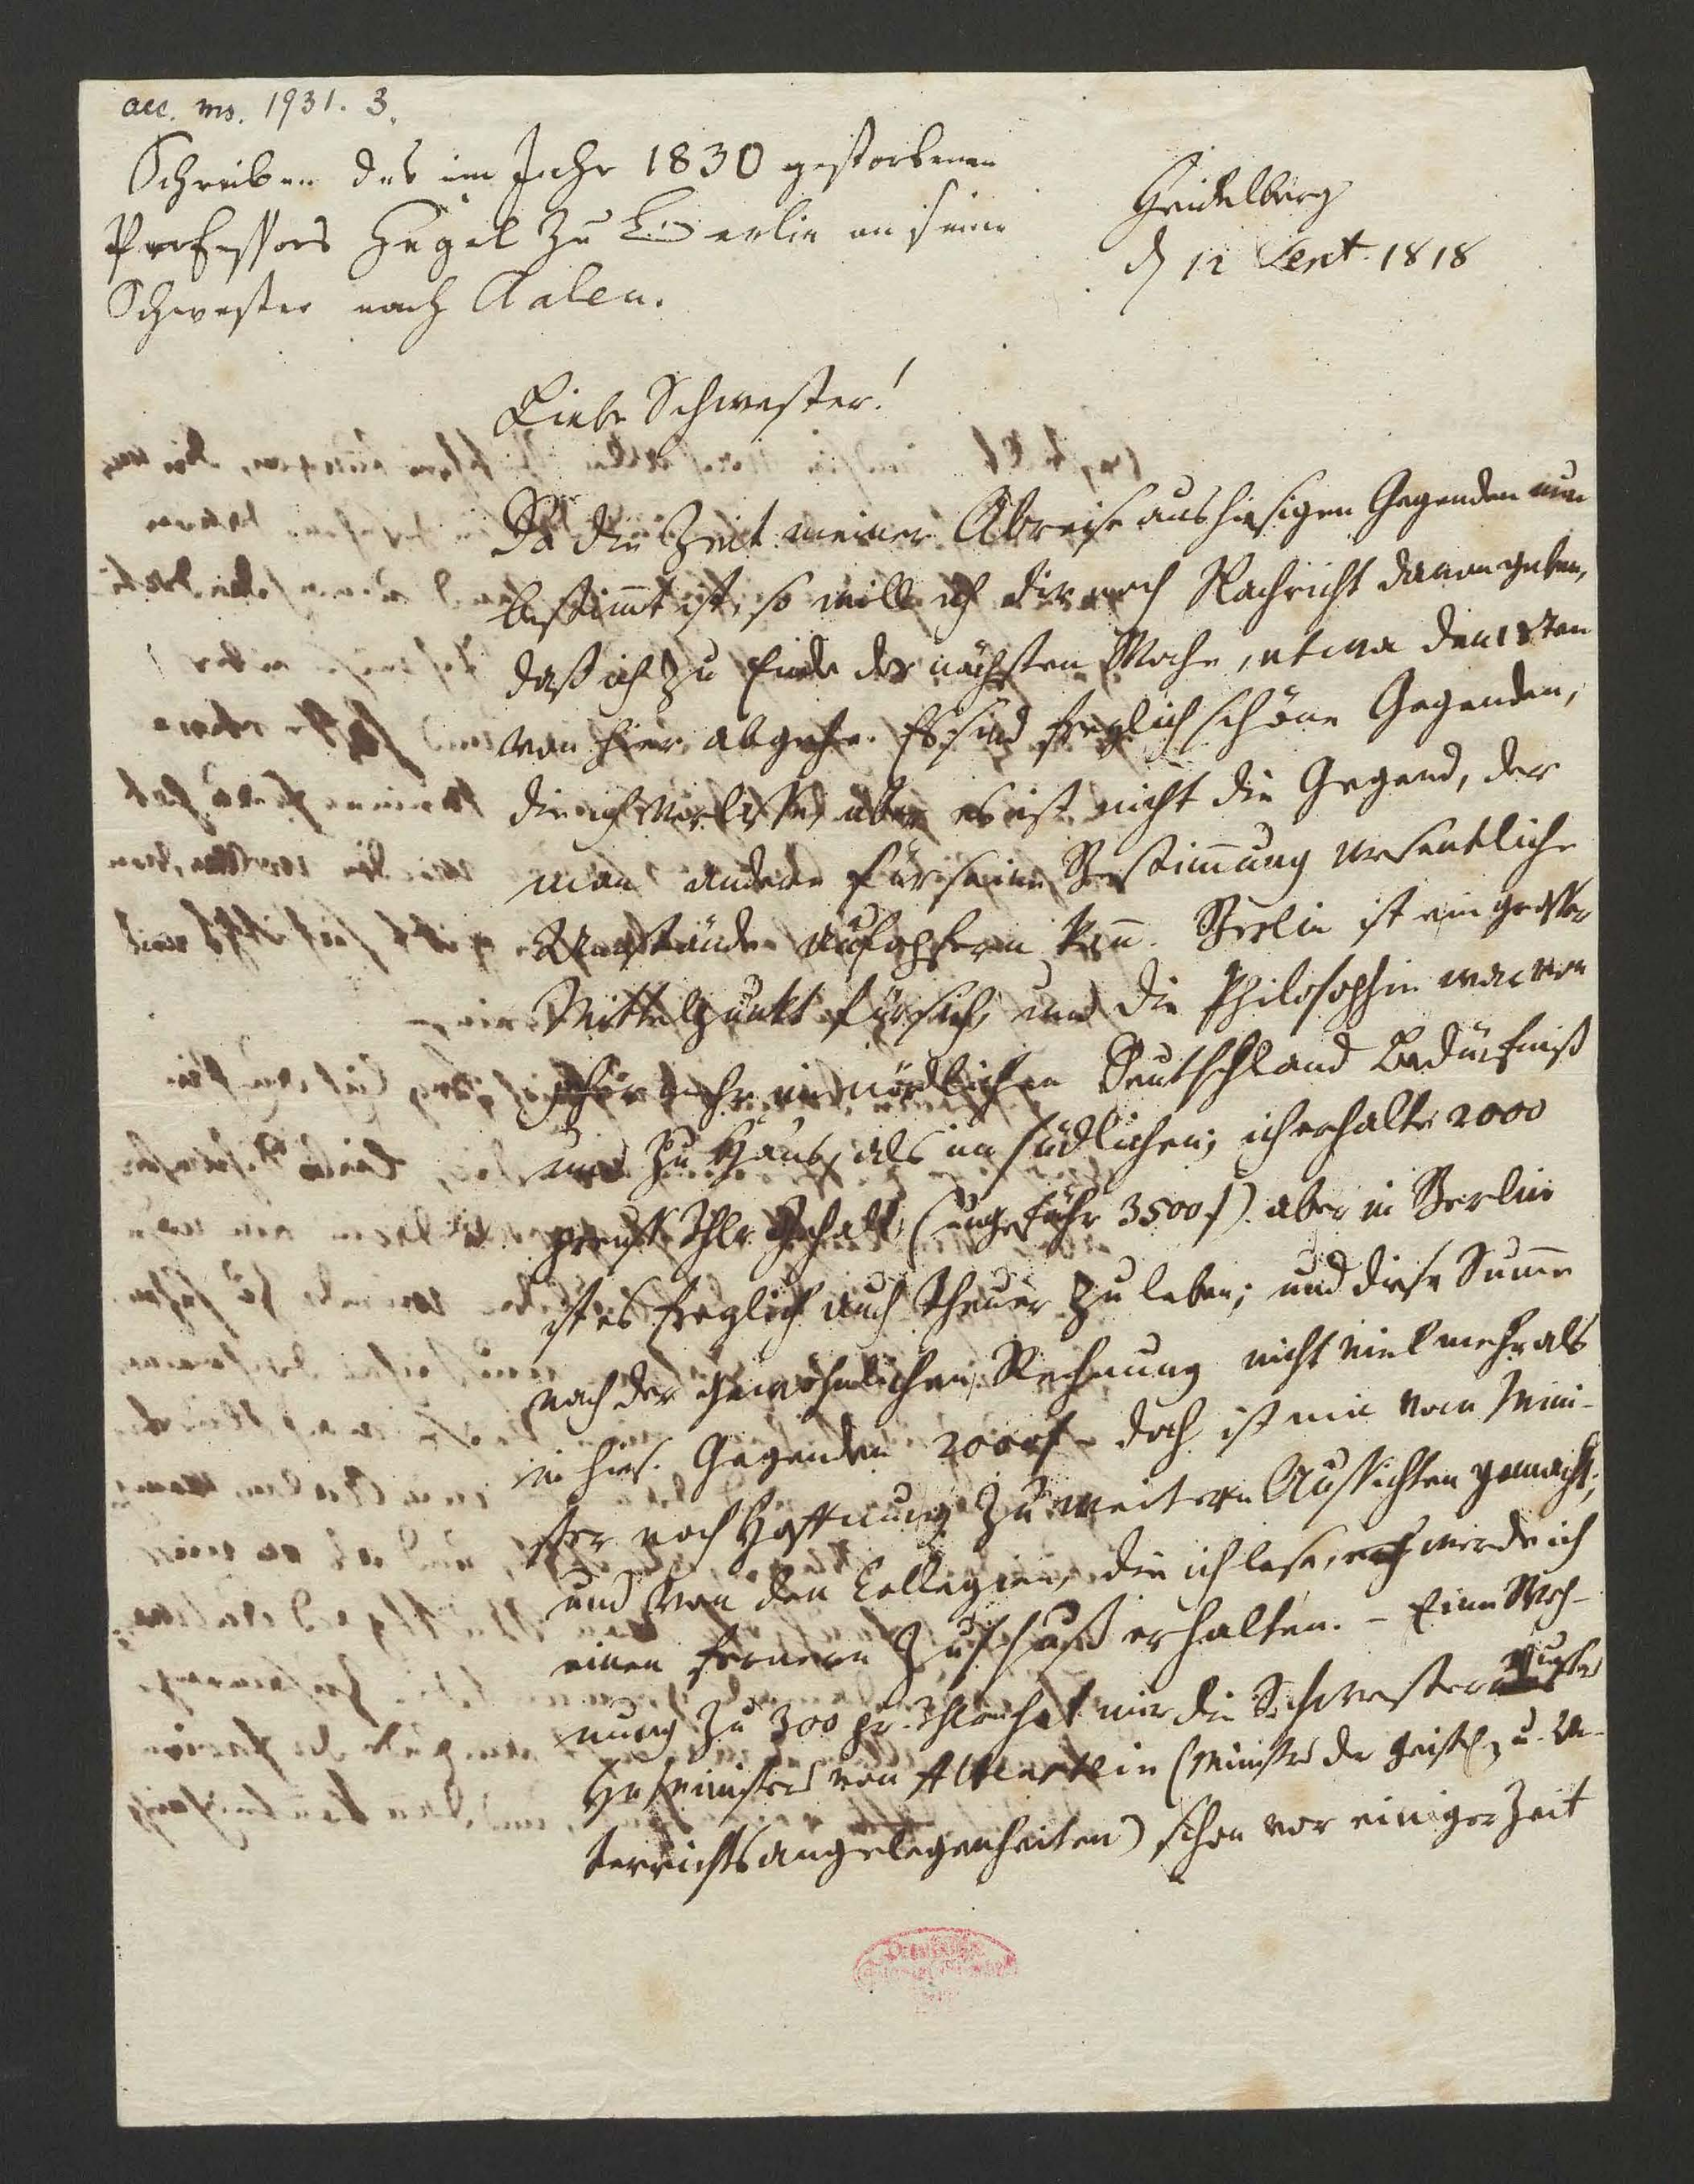 acc. ms. 1931. 3.
Schreiben des im Jahr 1830 gestorbenen
Professors Hegel zu Berlin an seine
Schwester nach Aalen.
Heidelberg
d 12 Sept. 1818
Liebe Schwester!
Da die Zeit meiner Abreise aus hiesigen Gegenden nun
bestimt ist, so will ich dir noch Nachricht davon geben,
daß ich zu Ende der nächsten Woche, etwa den 18ten
von hier abgehe. Es sind freylich schöne Gegenden,
die ich verlasse, aber es ist nicht die Gegend, der
man andere für seine Bestimung wesentliche
Umstände aufopfern kan. Berlin ist ein grosser
Mittelpunkt für sich, und die Philosophie war von
jeher mehr im nördlichen Deutschland Bedürfniß
und zu Haus, als im südlichen; ich erhalte 2000
preuß. Thlr. Gehalt, (ungefähr 3500 f) aber in Berlin
ist es freylich auch theuer zu leben; und diese Sume
nach der gewöhnlichen Rechnung nicht viel mehr als
in hies. Gegenden 2000 f – doch ist mir vom Mini-
ster noch Hoffnung zu weitern Aussichten gemacht;
und von den Collegien, die ich lese, werde ich
einen fernern Zuschuß erhalten. – Eine Woh-
nung zu 300 pr. Thlrn hat mir die Schwester
H. Ministers von Altenstein (Minister der geistl. u. Un-
terrichtsangelegenheiten) schon vor einiger Zeit